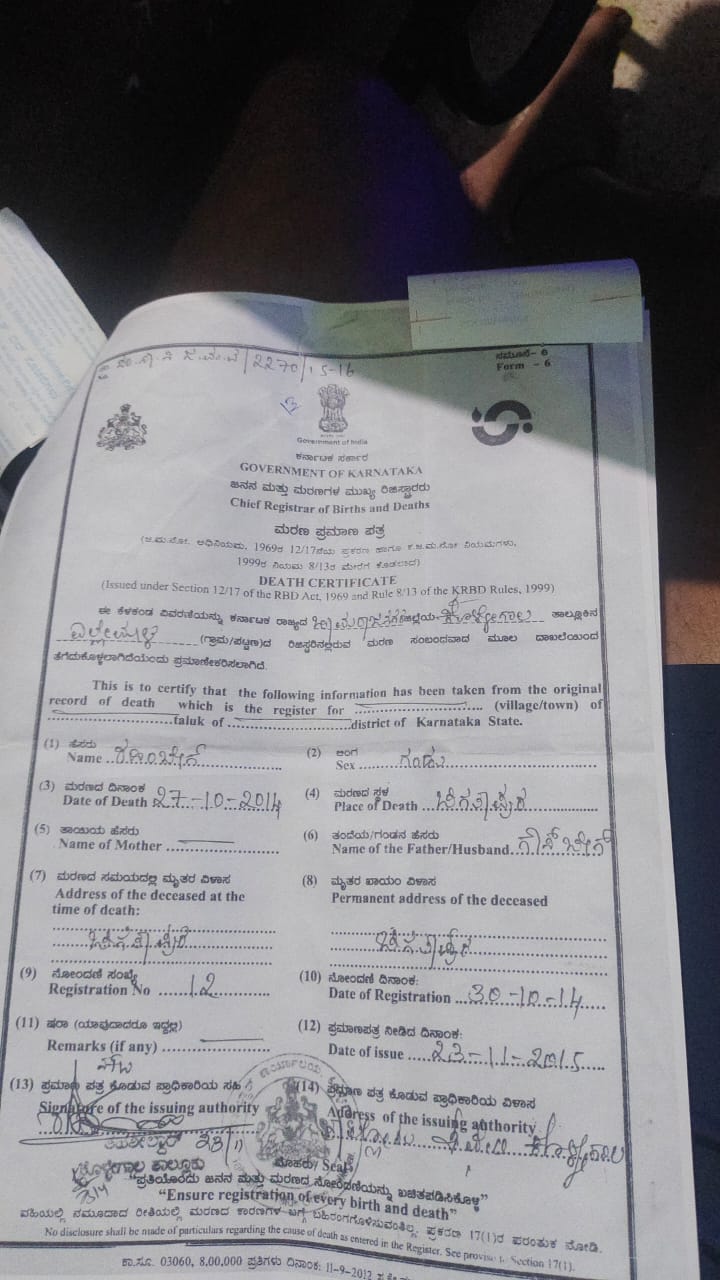 2270/15-16
ನಮೂನೆ- 6
Form - 6
Government of India
ಕರ್ನಾಟಕ ಸರ್ಕಾರ
GOVERNMENT OF KARNATAKA
ಜನನ ಮತ್ತು ಮರಣಗಳ ಮುಖ್ಯ ರಿಜಿಸ್ಟ್ರಾರರು
Chief Registrar of Births and Deaths
ಮರಣ ಪ್ರಮಾಣ ಪತ್ರ
(ಜ.ಮ.ನೋ. ಅಧಿನಿಯಮ, 1969ರ 12/17ನೆಯ ಪ್ರಕರಣ ಹಾಗೂ ಕ.ಜ.ಮ.ನೋ ನಿಯಮಗಳು,
1999ರ ನಿಯಮ 8/13ರ ಮೇರೆಗೆ ಕೊಡಲಾದ)
DEATH CERTIFICATE
(Issued under Section 12/17 of the RBD Act, 1969 and Rule 8/13 of the KRBD Rules, 1999)
ಈ ಕೆಳಕಂಡ ವಿವರಣೆಯನ್ನು ಕರ್ನಾಟಕ ರಾಜ್ಯದ ಚಾಮರಾಜನಗರ ಜಿಲ್ಲೆಯ ಕೊಳ್ಳೇಗಾಲ ತಾಲ್ಲೂಕಿನ
(ಗ್ರಾಮ/ಪಟ್ಟಣ)ದ ರಿಜಿಸ್ಟರಿನಲ್ಲಿರುವ ಮರಣ ಸಂಬಂದವಾದ ಮೂಲ ದಾಖಲೆಯಿಂದ
ತೆಗೆದುಕೊಳ್ಳಲಾಗಿದೆಯೆಂದು ಪ್ರಮಾಣೀಕರಿಸಲಾಗಿದೆ.
This is to certify that the following information has been taken from the original
record of death which is the register for (village/town) of
taluk of district of Karnataka State.
(1) ಹೆಸರು
Name
(2) ಲಿಂಗ
Sex ಗಂಡು
(3) ಮರಣದ ದಿನಾಂಕ
Date of Death 27-10-2014
(4) ಮರಣದ ಸ್ಥಳ
Place of Death
(5) ತಾಯಿಯ ಹೆಸರು
Name of Mother
(6) ತಂದೆಯ/ಗಂಡನ ಹೆಸರು
Name of the Father/Husband
(7) ಮರಣದ ಸಮಯದಲ್ಲಿ ಮೃತರ ವಿಳಾಸ
Address of the deceased at the
time of death:
(8) ಮೃತರ ಖಾಯಂ ವಿಳಾಸ
Permanent address of the deceased
(9) ನೋಂದಣಿ ಸಂಖ್ಯೆ
Registration No 12
(10) ನೋಂದಣಿ ದಿನಾಂಕ:
Date of Registration 30-10-14
(11) ಷರಾ (ಯಾವುದಾದರೂ ಇದ್ದಲ್ಲಿ)
Remarks (if any)
(12) ಪ್ರಮಾಣಪತ್ರ ನೀಡಿದ ದಿನಾಂಕ:
Date of issue 23-11-2015
(13) ಪ್ರಮಾಣ ಪತ್ರ ಕೊಡುವ ಪ್ರಾಧಿಕಾರಿಯ ಸಹಿ
Signature of the issuing authority
(14) ಪ್ರಮಾಣ ಪತ್ರ ಕೊಡುವ ಪ್ರಾಧಿಕಾರಿಯ ವಿಳಾಸ
Address of the issuing authority
ತಹಶೀಲ್ದಾರ್ 23/11
ಕೊಳ್ಳೇಗಾಲ ತಾಲ್ಲೂಕು
ಮೊಹರು/ Seal
"ಪ್ರತಿಯೊಂದು ಜನನ ಮತ್ತು ಮರಣದ ನೋಂದಣಿಯನ್ನು ಖಚಿತಪಡಿಸಿಕೊಳ್ಳಿ"
"Ensure registration of every birth and death"
ವಹಿಯಲ್ಲಿ ನಮೂದಾದ ರೀತಿಯಲ್ಲಿ ಮರಣದ ಕಾರಣಗಳ ಬಗ್ಗೆ ಬಹಿರಂಗಗೊಳಿಸುವಂತಿಲ್ಲ. ಪ್ರಕರಣ 17(1)ರ ಪರಂತುಕ ನೋಡಿ.
No disclosure shall be made of particulars regarding the cause of death as entered in the Register. See Section 17(1).
ಕಾ.ಸೂ. 03060, 8,00,000 ಪ್ರತಿಗಳು ದಿನಾಂಕ: 11-9-2012